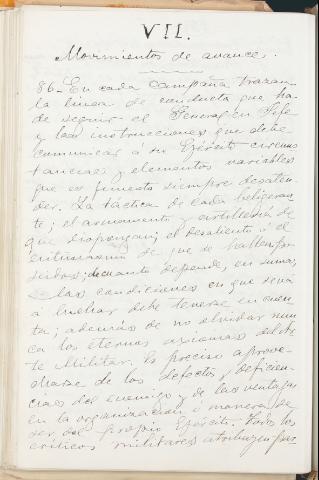 VII.
Movimientos de avance.
86.- En cada Campaña trazan
la linea de conducta que ha
de seguir el General en Jefe
y las instrucciones que debe
comunicar a su Ejército circuns
tancias y elementos variables
que es funesto siempre desaten-
der. La táctica de cada beligeran-
te; el armamento y artilleria de
que dispongan; el desaliento o el
entusiasmo de que se hallen po-
seidos; de cuanto depende, en suma,
las condiciones en que se va
a luchar debe tenerse en cuen-
ta; además de no olvidar nun
ca los eternos axiomas del Ar
te Militar. Es preciso aprove-
charse de los defectos y deficien-
cias del enemigo y de las ventajas
en la organización o manera de
ser del propio Ejército. Todos los
criticos militares atribuyen